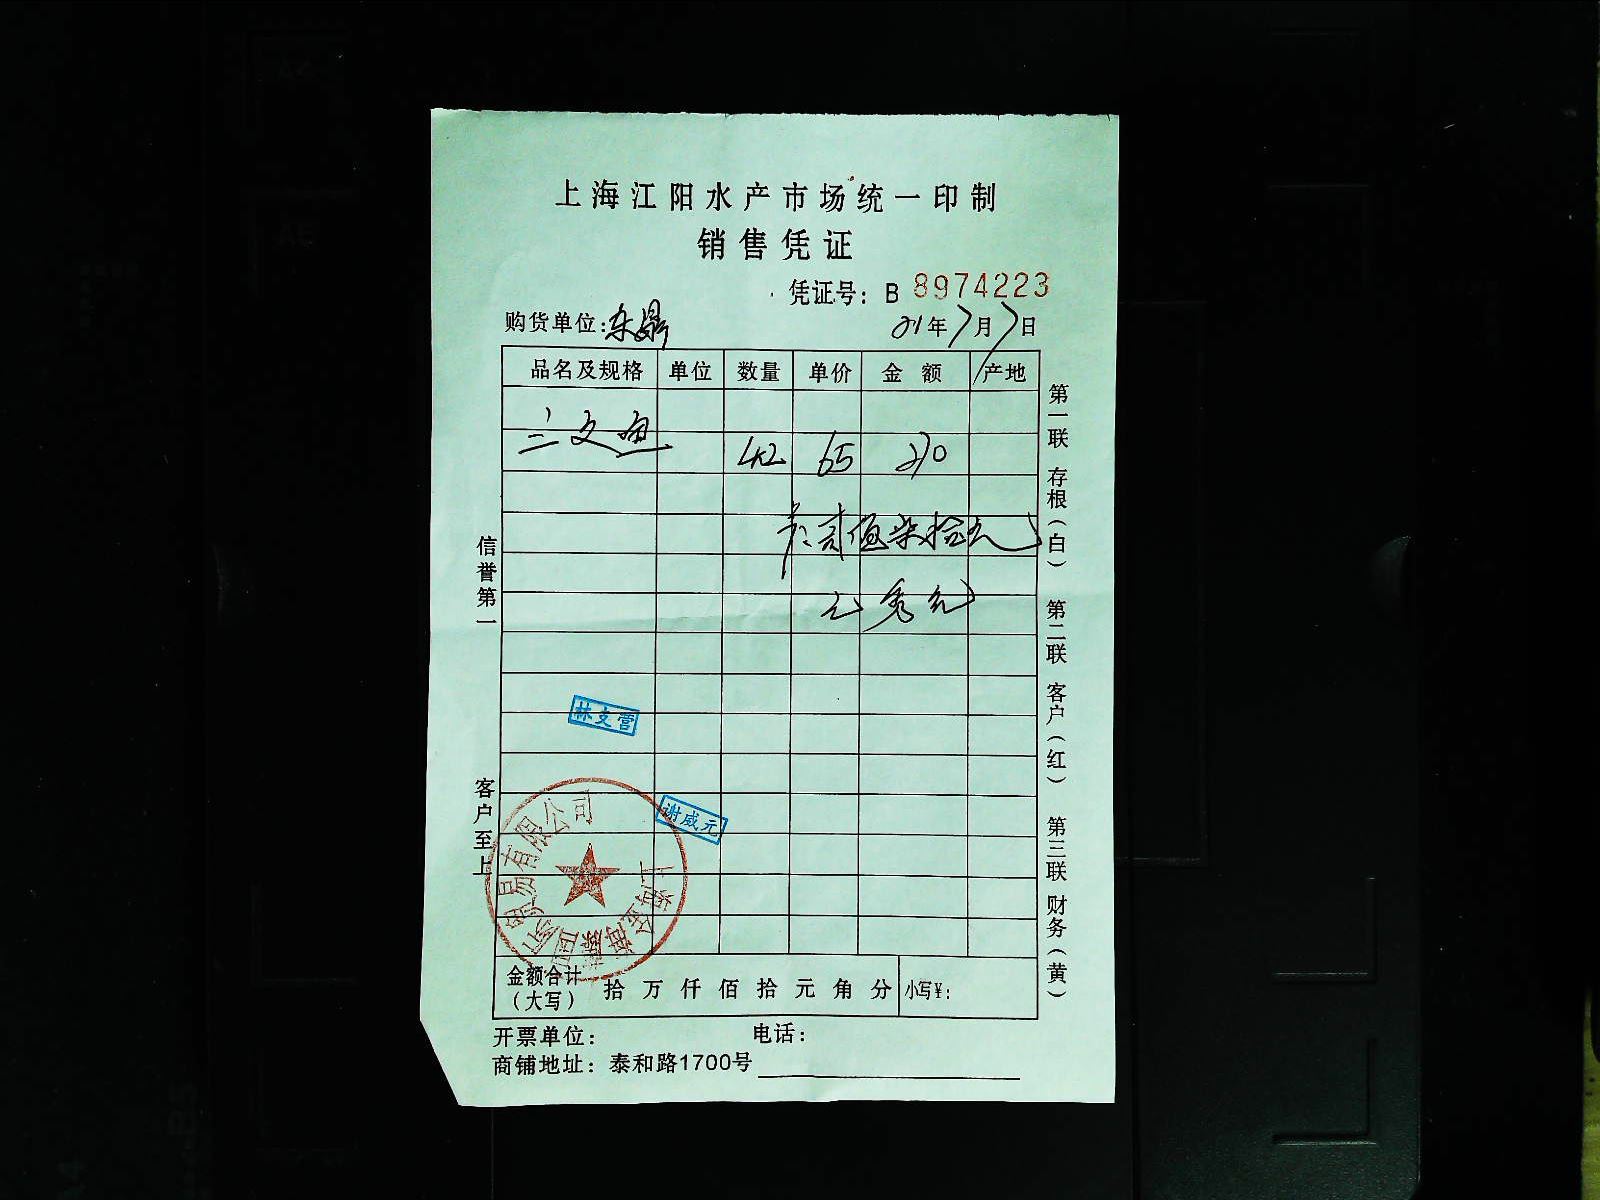 上海江阳水产市场统一印制
销售凭证
凭证号：B 8974223
购货单位：东鼎 21年7月7日
品名及规格 单位 数量 单价 金额 产地
三文鱼 42 65 270
贰佰柒拾元
信誉第一
客户至上
第一联 存根（白） 第二联 客户（红） 第三联 财务（黄）
林支营
谢威元
国际贸易有限公司
金额合计（大写） 拾万仟佰拾元角分 小写¥：
开票单位： 电话：
商铺地址：泰和路1700号